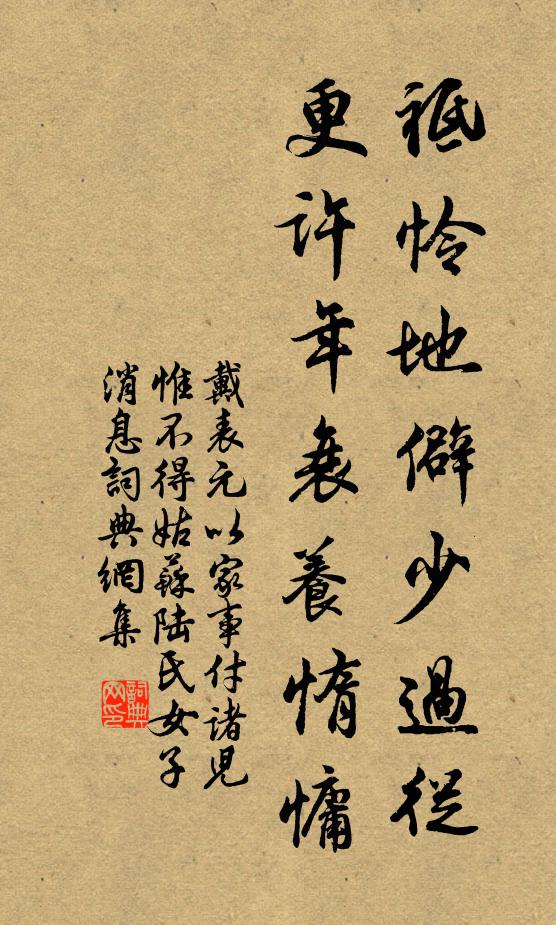 祗怜地僻少過從
更許年衰養惰慵
戴表元以家事付諸児
惟不得姑蘇陸氏女子
消息詞典網集
詞典网印